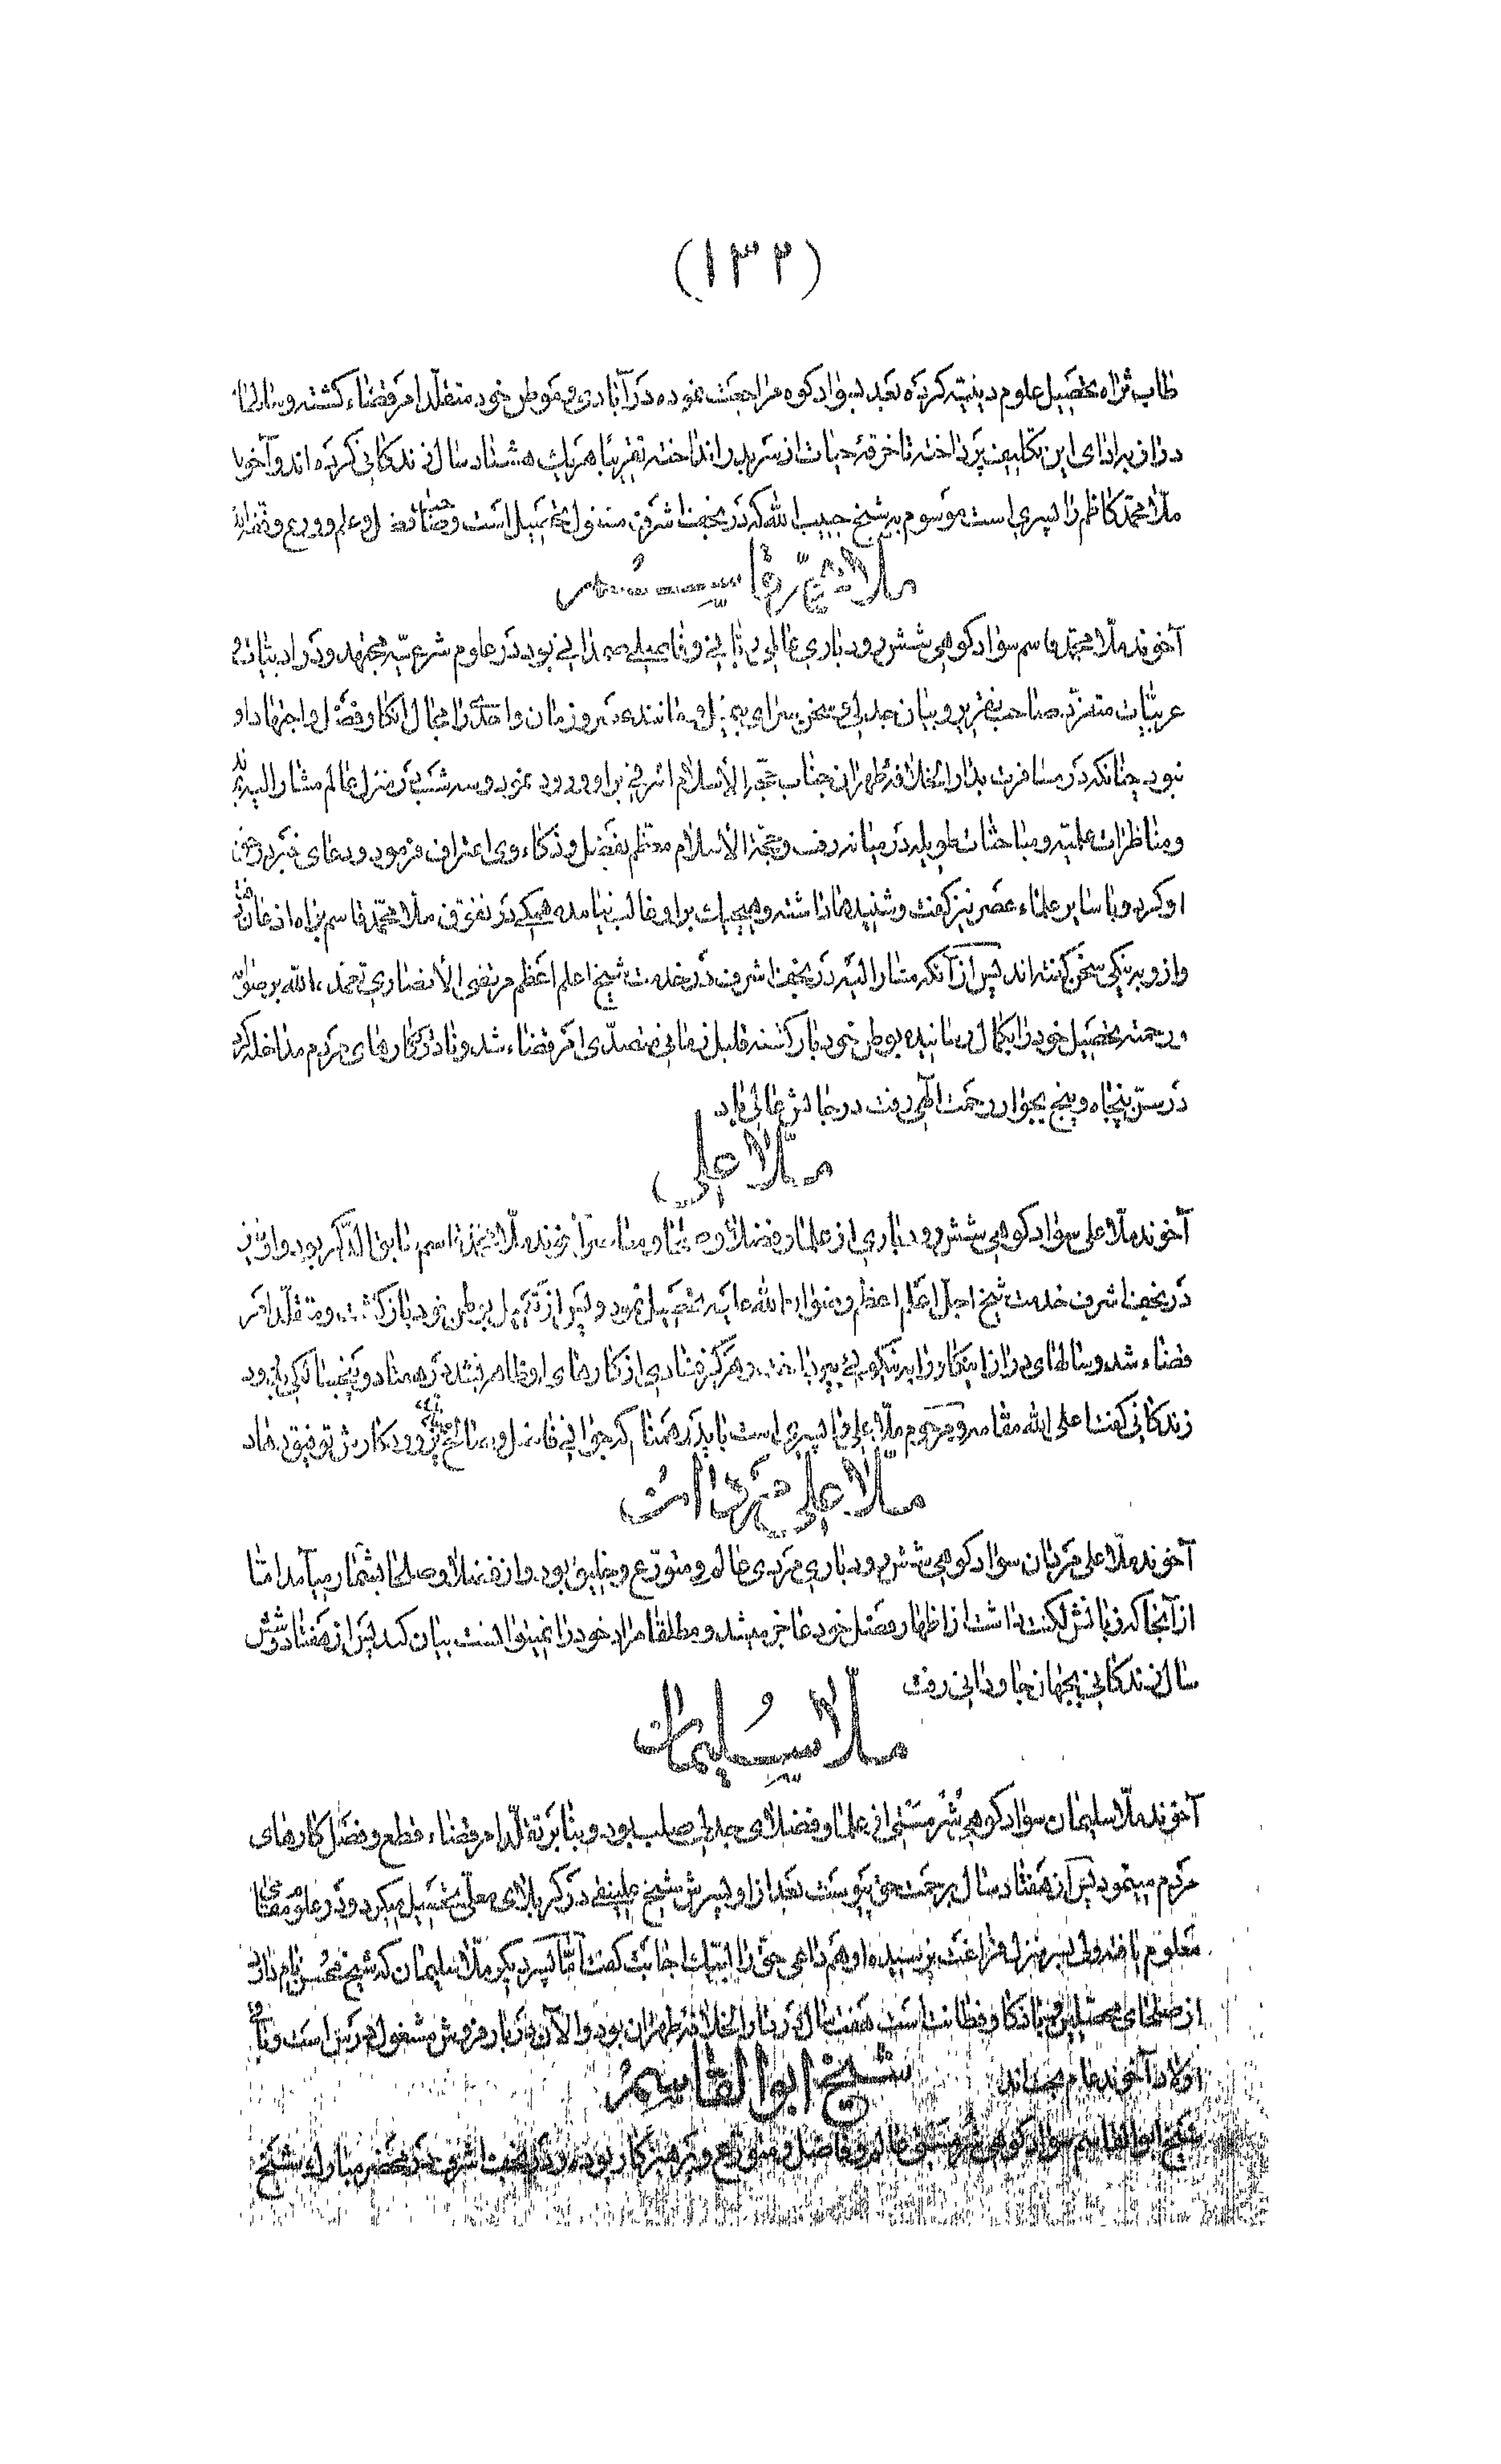 (۱۳۲)
طاب ثراه تحصیل علوم دینیّه کرده بعد بسواد کوه مراجعت نموده در آبادی و موطن خود متقلّد امر قضاء کشته و سالها
دراز برادای این تکالیف پرداخته تا خرقهٔ حیات از سر بدر انداخته تقریبًا هریك هشتاد سال زندکانی کرده اند و آخوند
ملّا محمّد کاظم را پسری است موسوم بشیخ حبیب الله که در نجف اشرف مشغول تحصیل است و فضل و علم و ورع و
ملّا محمّد قاسم
آخوند ملّا محمّد قاسم سواد کوهی شش رودباری عالمی ربّانی و فاضلی صمدانی بود در علوم شرعیّه مجتهد و در ادبیّات و
عربیّات متفرّد صاحب تقریر و بیان جدلی و سخن سرای بی بدل و مانند در روزمان واحدی را مجال انکار فضل و اجتهاد او
نبود چنانکه در مسافرت بدار الخلافهٔ طهران جناب حجّة الأسلام اشرفی براو ورود نمود و سه شب در منزل عالم مشار الیه
و مناظرات علمیّه و مباحثات طویله در میانه رفت و حجّة الأسلام معظّم بفضل و ذکاء وی اعتراف فرمود و دعای در حق
او کرد و با سایر علماء عصر نیز کفت و شنیدها داشته و هیچیك براو غالب نیامده همکی در تفوّق ملّا محمّد قاسم اذعان
و از وی به نیکی سخن کفته اند پس از آنکه مشار الیه در نجف اشرف در خدمت شیخ اعلم اعظم مرتضی الأنصاری تغمّده الله برضوانه
و رحمته تحصیل خود را بکمال رسانیده بوطن خود باز کشته قلیل زمانی متصدّی امر قضاء شد و در کارهای مردم مداخله کرد
در سنّ پنجاه و پنج بجوار رحمت الهی رفت درجاتش عالی باد
ملّا علی
آخوند ملّا علی سواد کوهی شش رودباری از علما و فضلا و صلحا و معاصر آخوند ملّا محمّد قاسم سابق الذّکر بود و او نیز
در نجف اشرف خدمت شیخ اجلّ اعلم اعظم رضوان الله علیه تحصیل نمود و پس از تکمیل بوطن خود باز کشت و متقلّد امر
قضاء شد و سالهای دراز اینکار را به نیکویی بپرداخت و هرکز فسادی از کارهای او ظاهر نشد در هفتاد و پنجسالکی بدرود
زندکانی کفت اعلی الله مقامه و مرحوم ملّا علی را پسری است با پدر همنام که جوانی فاضل و صالح کارش توفیق دهاد
ملّا علی مردان
آخوند ملّا علی مردان سواد کوهی شش رودباری مردی عالم و متورّع و خلیق بود و از فضلا و صلحا بشمار میآمد امّا
از آنجا که زبانش لکنت داشت از اظهار فضل خود عاجز میشد و مطلقا مراد خود را نمیتوانست بیان کند پس از هفتاد و شش
سال زندکانی بجهان جاودانی رفت
ملّا سلیمان
آخوند ملّا سلیمان سواد کوهی از علما و فضلای جدلی صلب بود و بنا بر تقلّد امر قضاء قطع و فصل کارهای
مردم مینمود پس از هفتاد سال برحمت حق پیوست بعد از او پسرش شیخ علینقی در کربلای معلّی تحصیل میکرد و در علوم
معلوم یافته ولی بسر منزل فراغت نرسیده او هم داعی حق را لبّیك اجابت کفت امّا پسر دیکر ملّا سلیمان که شیخ محسن نام دارد
از صلحای محصّلین و با ذکا و فطانت است هفت سال در دار الخلافهٔ طهران بود و الآن در بارفروش مشغول درس است و
اولاد آخوند عام بحث اند
شیخ ابوالقاسم
شیخ ابوالقاسم سواد کوهی عالم و فاضل و متورّع و پرهیزکار بود و در نجف اشرف در محضر مبارك شیخ